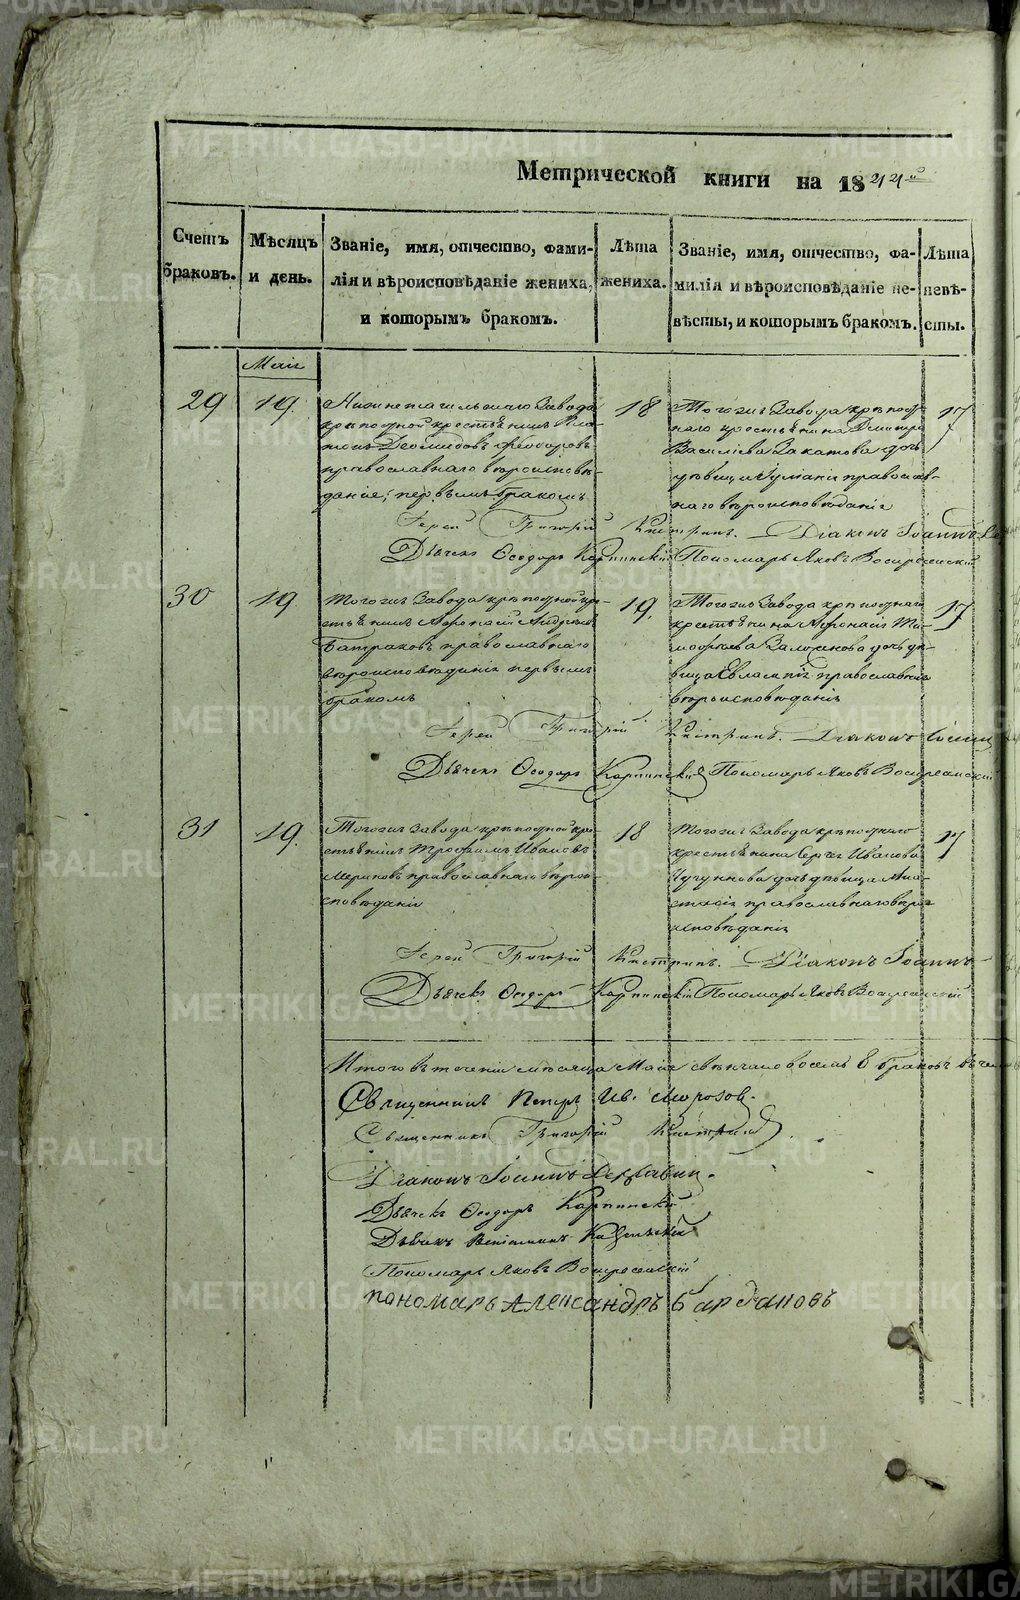 Метрической книги на 1844й
Счетъ браковъ.
Мѣсяцъ и день.
Званіе, имя, отчество, фамилія и вѣроисповѣданіе жениха, и которымъ бракомъ.
Лѣта жениха.
Званіе, имя, отчество, фамилія и вѣроисповѣданіе невѣсты, и которымъ бракомъ.
Лѣта невѣсты.
Маія
29
19.
Нижнетагильскаго Завода
крѣпостной крестьянинъ
Диомидовъ Ѳеодоровъ
православнаго вѣроисповѣ-
данія; первымъ бракомъ
18
Тогожъ Завода крѣпост-
наго крестьянина Дмитрія
Василіева Закатова дочь
дѣвица православ-
наго вѣроисповѣданія
17
Іерей Григорій Діаконъ Іоаннъ
Дьячекъ Ѳеодоръ Карпинскій Пономарь Яковъ Воскресенскій
30
19
Тогожъ Завода крѣпостной кре-
стьянинъ Аѳанасій Андреевъ
Батраковъ православнаго
вѣроисповѣданія первымъ
бракомъ
19.
Тогожъ Завода крѣпостнаго
крестьянина Аѳонасія Ти-
моѳеева дочь дѣ-
вица Евлампія православнаго
вѣроисповѣданія
17
Іерей Григорій Діаконъ
Дьячекъ Ѳеодоръ Карпинскій Пономарь Яковъ Воскресенскій
31
19.
Тогожъ Завода крѣпостной кре-
стьянинъ Трофимъ Ивановъ
православнаго вѣрои-
сповѣданія
18
Тогожъ Завода крѣпостнаго
крестьянина Сергея Иванова
Чугунова дочь дѣвица Ана-
стасія православнаго вѣро-
исповѣданія
17
Іерей Григорій Діаконъ Іоаннъ
Дьячекъ Ѳеодоръ Карпинскій Пономарь Яковъ Воскресенскій
Итого въ теченіи мѣсяца Маія свѣнчано восемь 8 браковъ
Священникъ Петръ Ив. Морозов.
Священникъ Григорій
Діаконъ Іоаннъ
Дьячекъ Ѳеодоръ Карпинскій
Дьячекъ
Пономарь Яковъ Воскресенскій
пономарь Александръ Бардановъ
METRIKI.GASO-URAL.RU